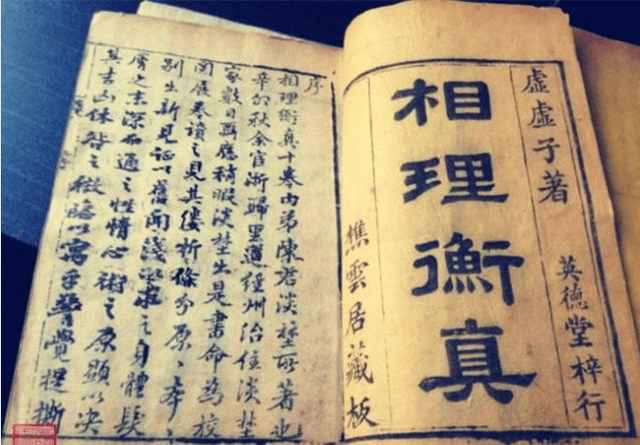 虛虛子著
英德堂梓行
相理衡真
樵雲居藏板
序
相理衡真十卷內弟陳君淡埜所著也
辛卯秋余宦浙歸里道經州治住淡埜
家數日應稍暇淡埜出是書命為校
閱展卷讀之見其縷析條分原〻本〻
別生新見證以舊聞淺之身體髮
膚之末深而通之性情心術之原顯以決
其吉凶休咎之徵隱以寓乎警覺提撕